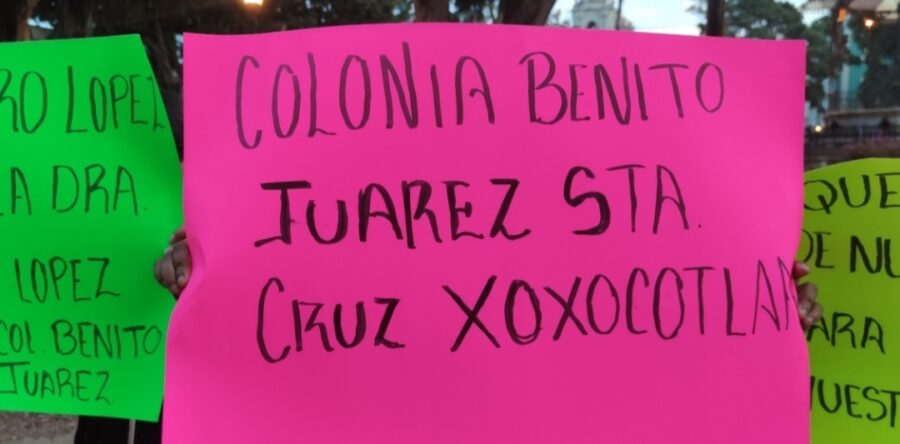 RO LOPEZ
A DRA.
LOPEZ
COL. BENITO
JUAREZ.
COLONIA BENITO
JUAREZ STA.
CRUZ XOXOCOTLAN
QUE
DE NU
ARA
UEST